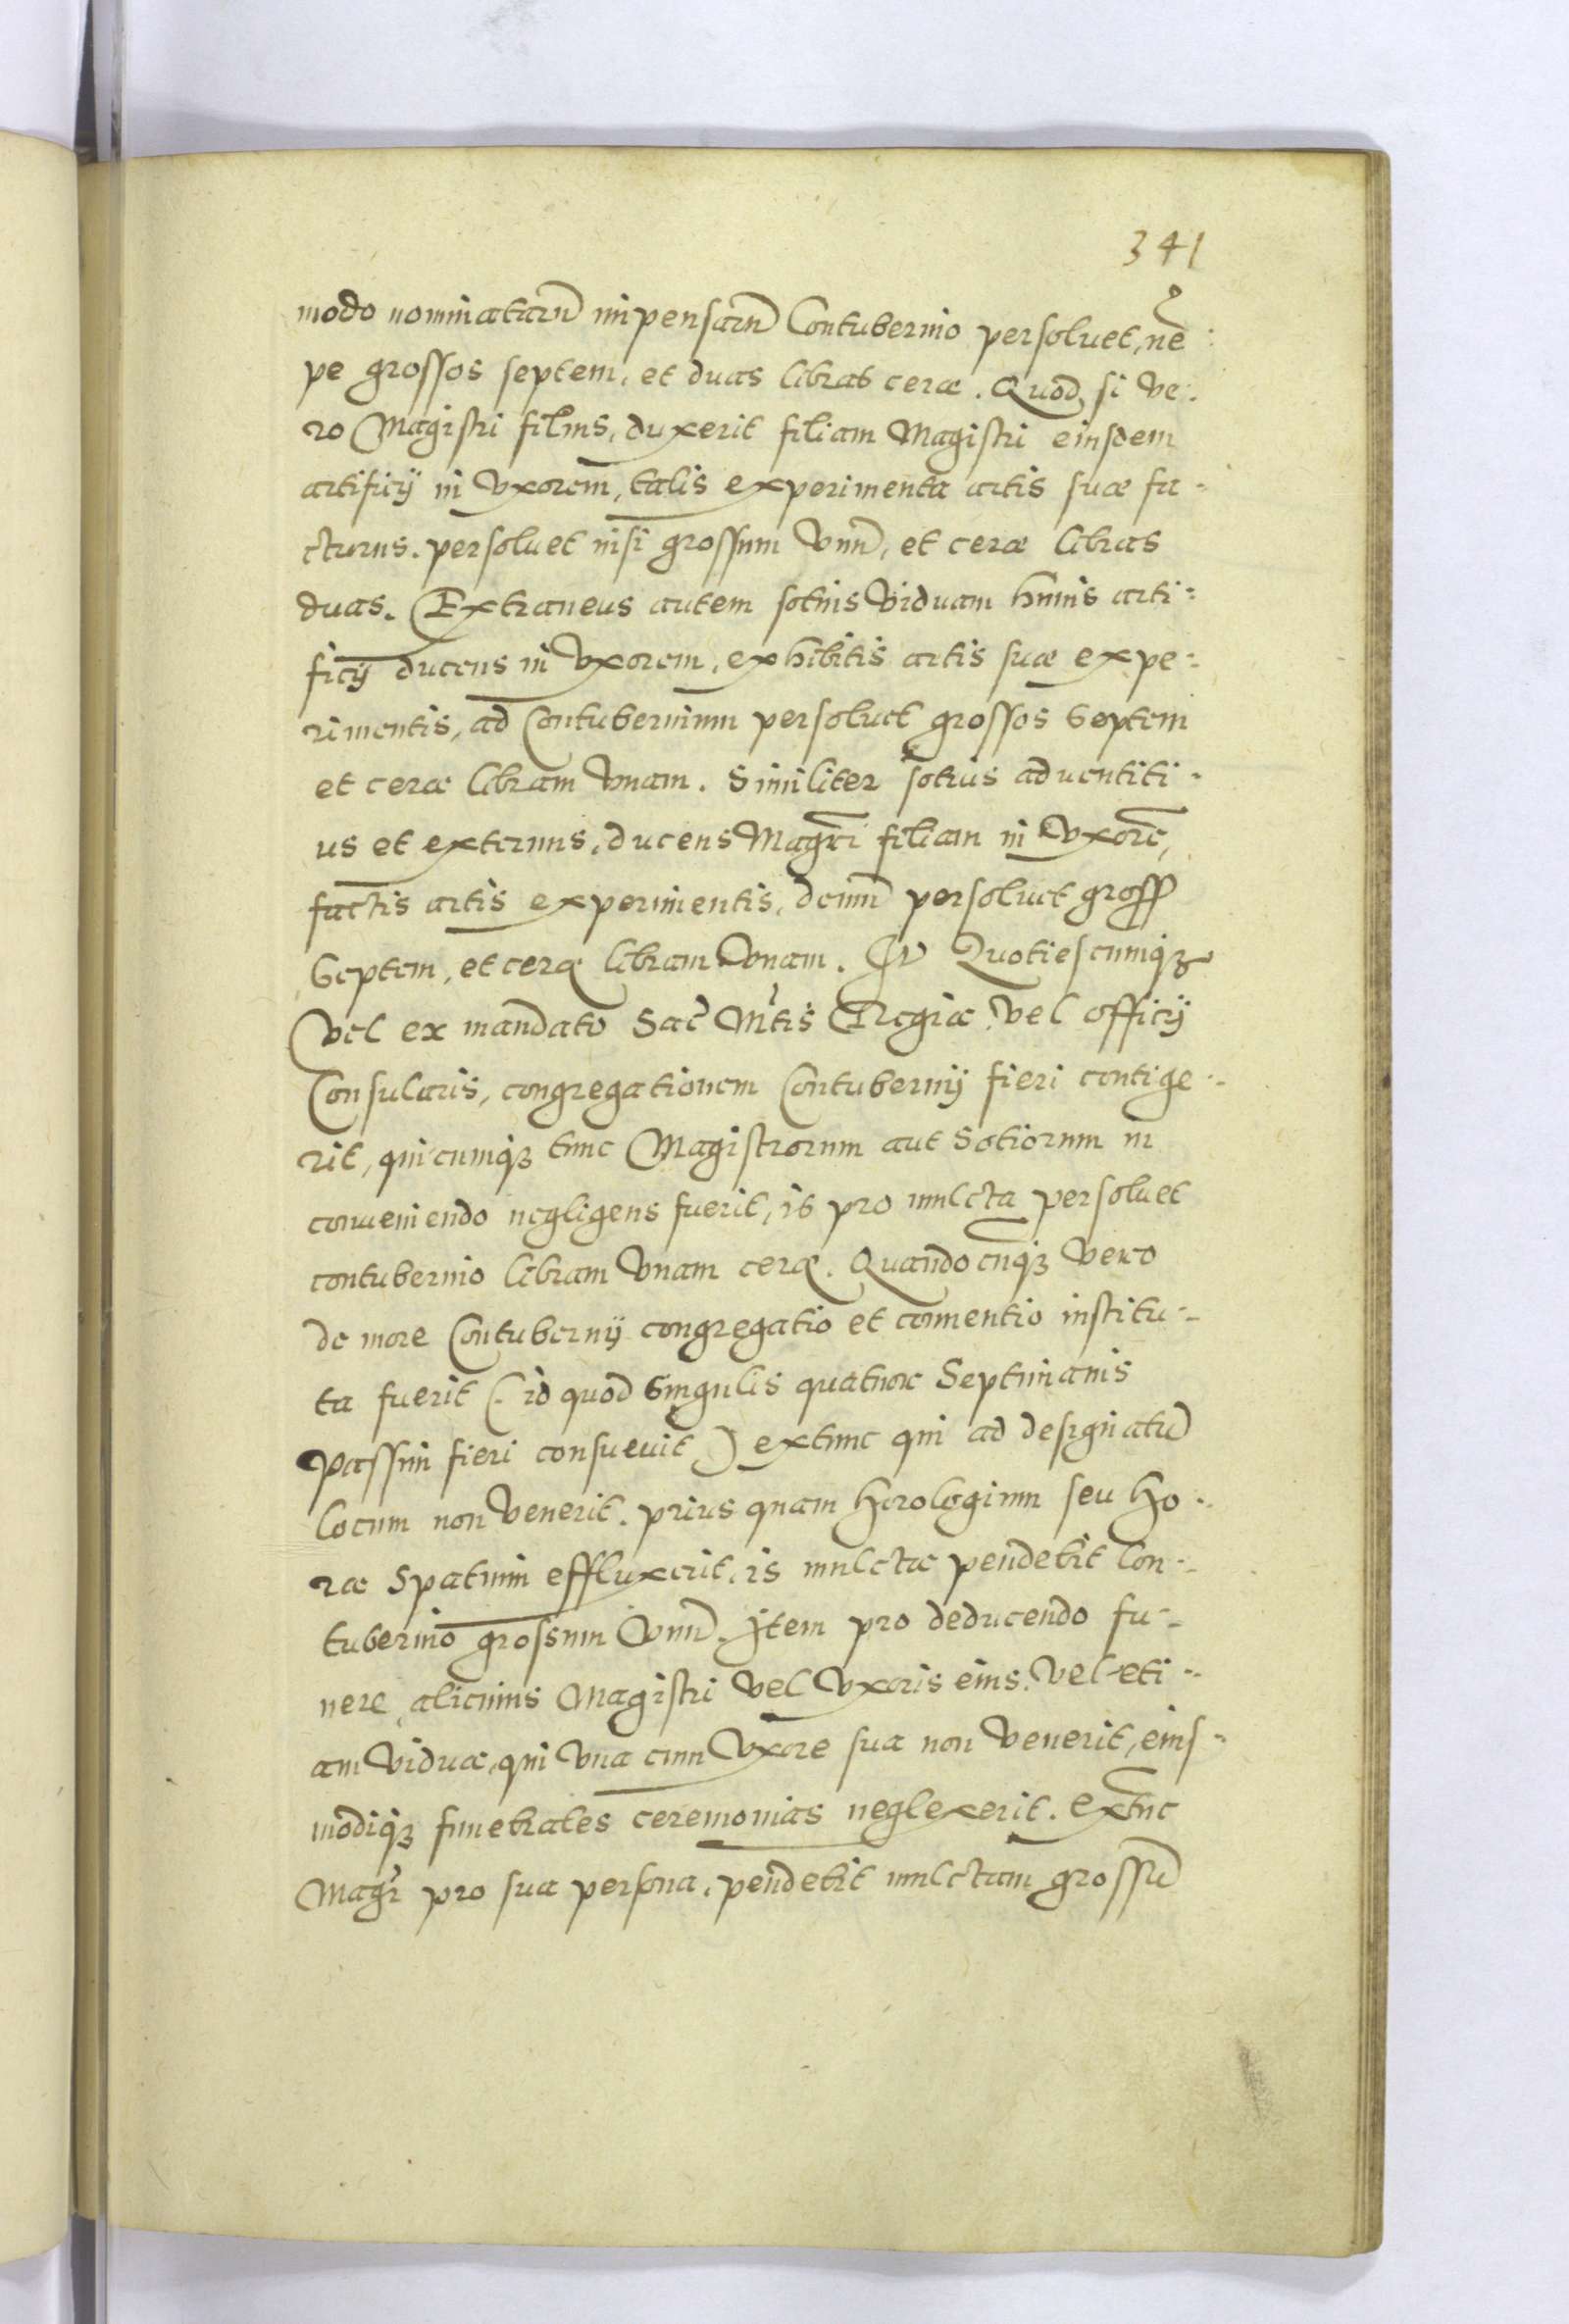 341
modo nominatarū impensarū Contubernio persoluet, nē:
pe grossos septem, et duas libras ceræ. Quod, si ve:
ro Magistri filius, duxerit filiam Magistri eiusdem
artificij in vxorem, talis experimenta artis suæ fa:
cturus. persoluet nisi grossum vnū, et ceræ libras
duas. Extraneus autem sotius viduam huius arti:
ficij ducens in vxorem, exhibitis artis suæ expe:
rimentis, ad Contubernium persoluet grossos Septem
et ceræ libram vnam. Similiter sotius aduentiti:
us et externus, ducens Magr̃i filiam in vxorē,
factis artis experimentis, demū persoluet gross
Septem, et ceræ libram vnam. Quotiescumqȝ
vel ex mandato Sac̃ Mtis Regiæ vel officij
Consularis, congregationem Contubernij fieri contige:
rit, quicumqȝ tunc Magistrorum aut Sotiorum in
conueniendo negligens fuerit, is pro mulcta persoluet
contubernio libram vnam ceræ. Quandocūqȝ vero
de more Contubernij congregatio et conuentio institu:
ta fuerit (id quod Singulis quatuor Septimanis
passim fieri consueuit) extunc qui ad designatū
locum non venerit. prius quam horologium seu ho:
ræ Spatium effluxerit, is mulctæ pendebit Con:
tubernio grossum vnū. Item pro deducendo fu:
nere alicuius Magistri vel vxoris eius. vel eti:
am viduæ, qui vna cum vxore sua non venerit, eius:
modiqȝ funebrales ceremonias neglexerit. Extūc
Magr̃ pro sua persona, pendebit mulctam grossū